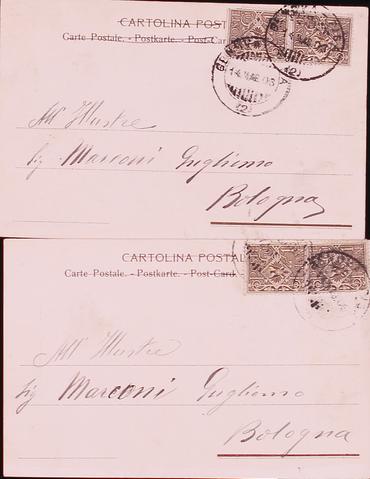 CARTOLINA POST
Carte Postale. - Postkarte. - Post-Car
All' Illustre
Sig Marconi Guglielmo
Bologna
CARTOLINA POSTAL
Carte Postale. - Postkarte. - Post-Card
All' Illustre
Sig Marconi Guglielmo
Bologna